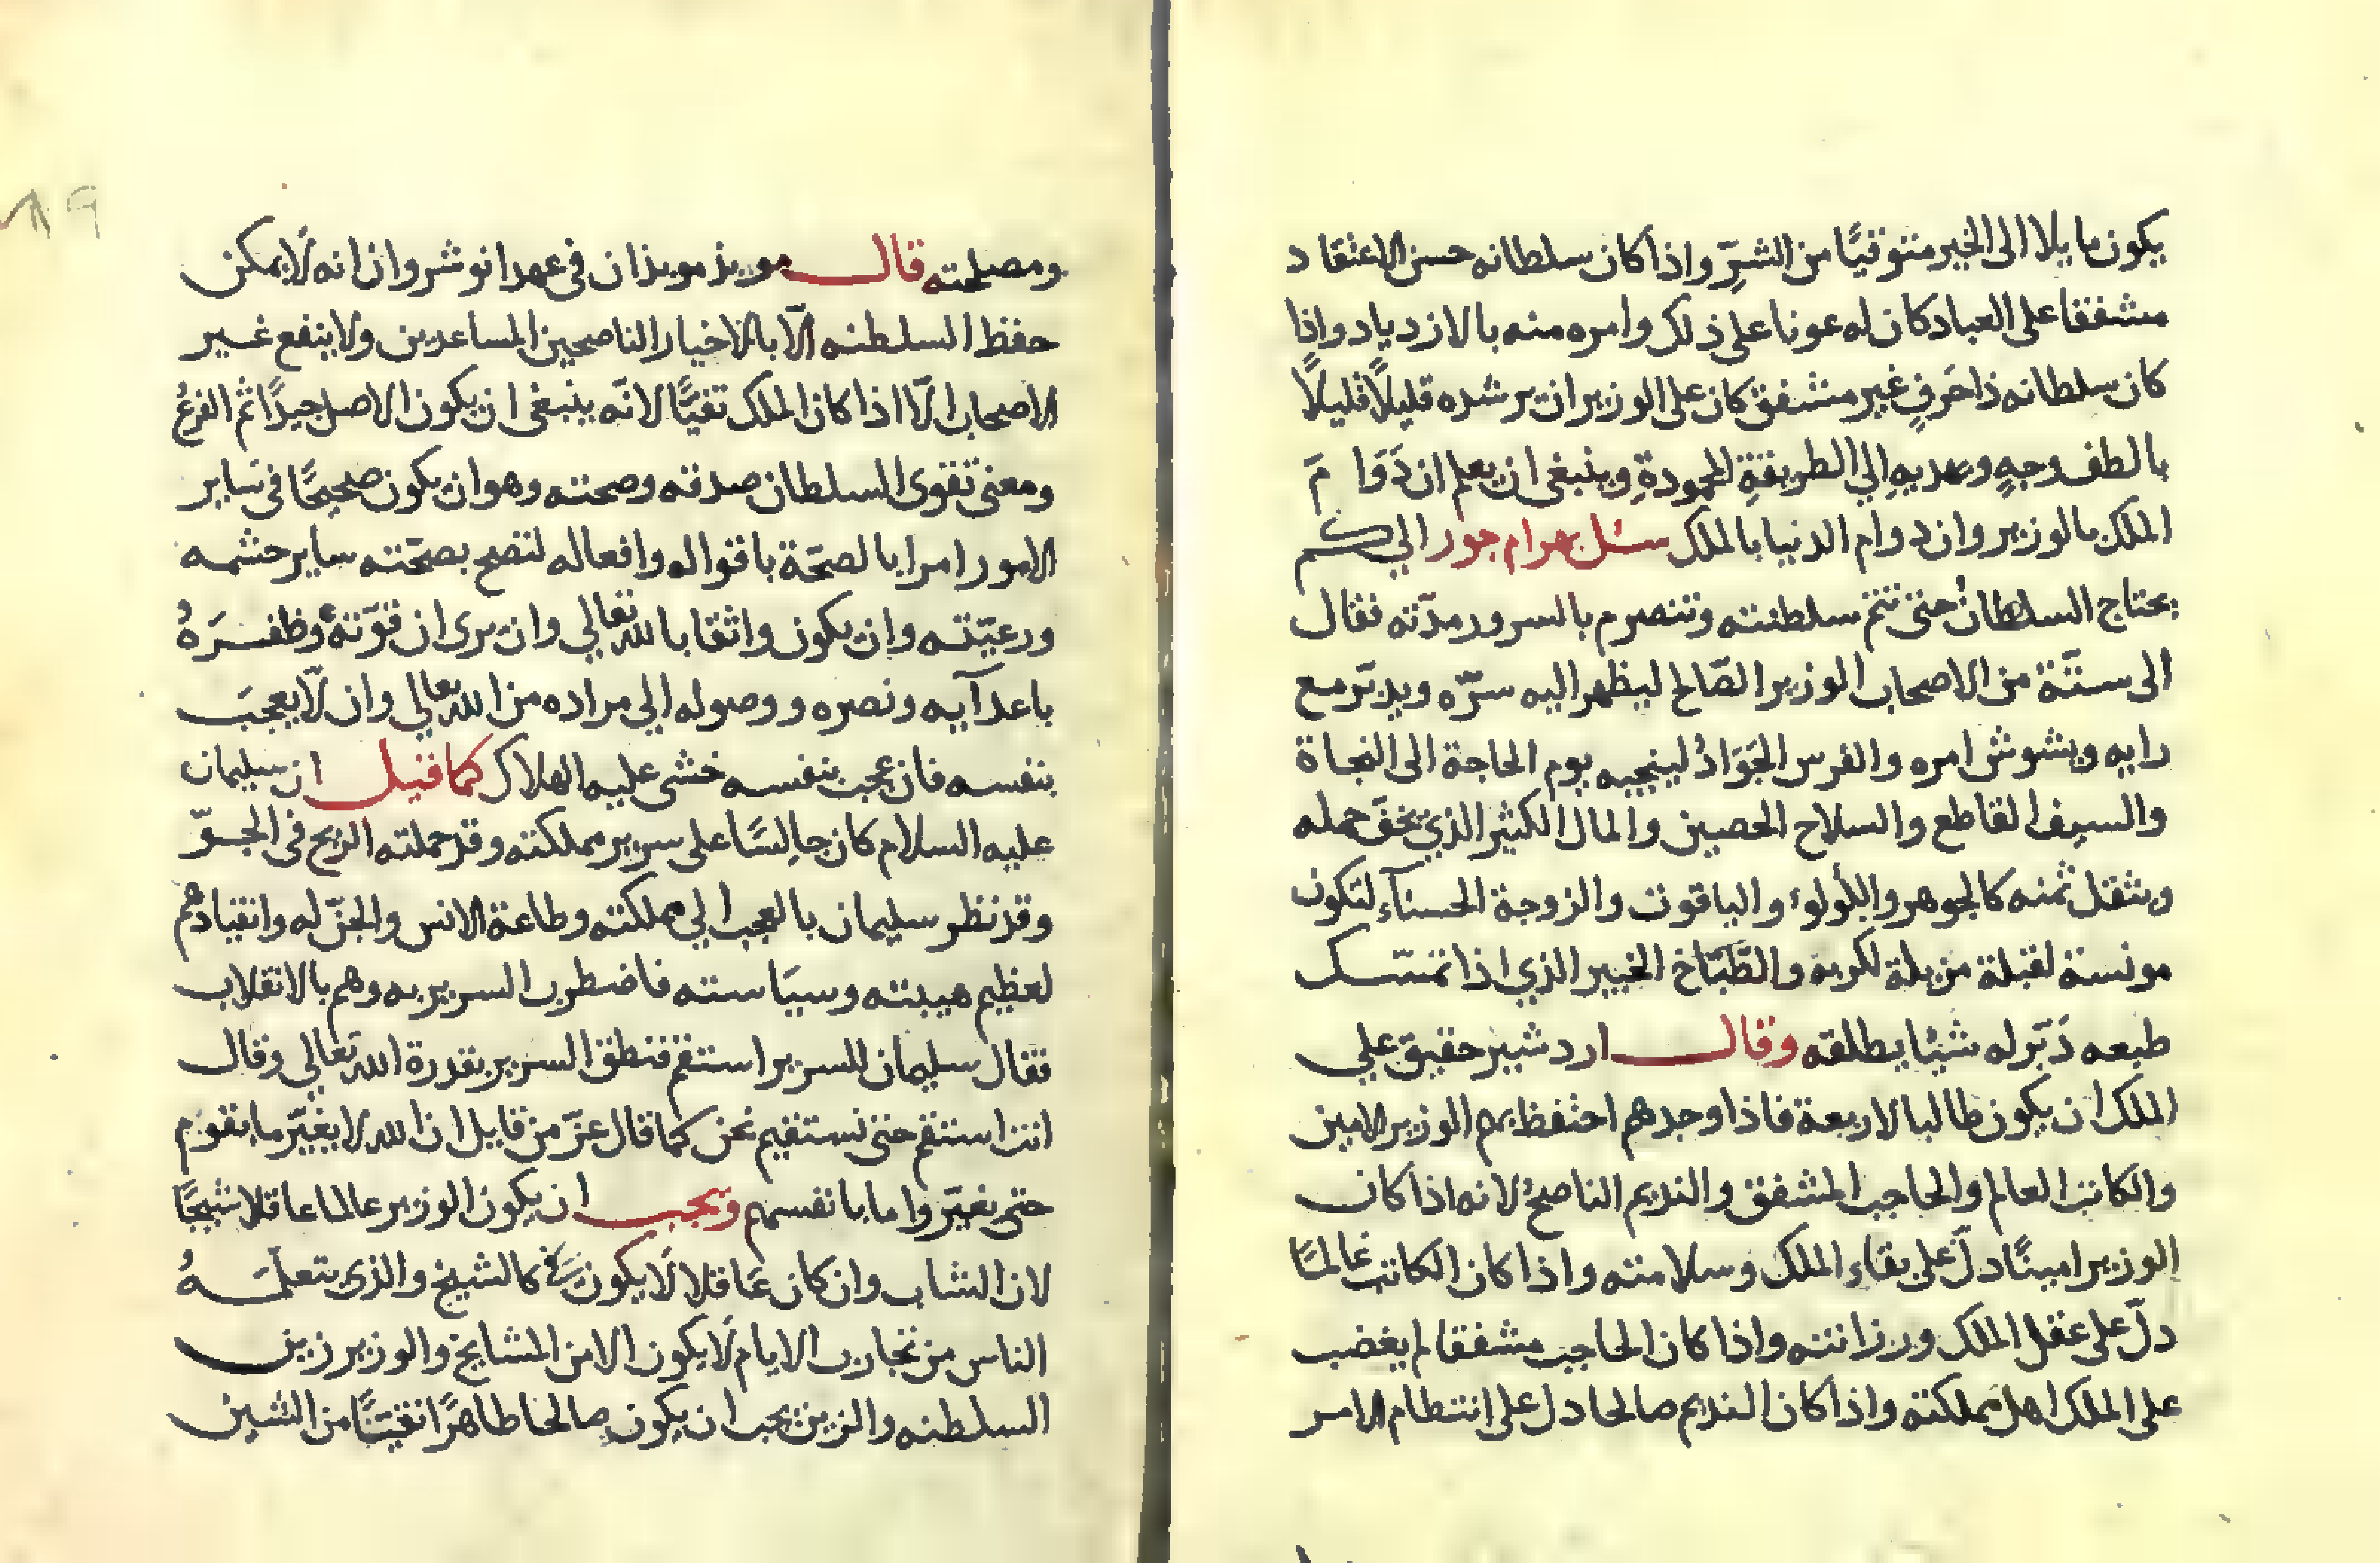 يكون مايلا الى الخير متوقيًا من الشرِّ واذا كان سلطانه حسن الاعتقاد
مشفقا على العباد كان له عونا على ذلك وامره منه بالازدياد واذا
كان سلطانه ذا خَرفٍ غير مشفق كان على الوزير ان يرشده قليلًا قليلًا
بالطف وجهٍ ويهديهِ الي الطريقةِ المحمودةِ وينبغى ان يعلم ان دَوَامَ
الملك بالوزير وان دوام الدنيا بالملك سئل بهرام جور الي كم
يحتاج السلطانُ حتى تتم سلطنته وتنصرم بالسرور مدّته فقال
الى ستّة من الاصحاب الوزير الصّالح ليظهر اليه سرّه ويدبّر مع
رايه ويشوش امره والفرس الجَوَادُ لينجيه يوم الحاجة الى النجاة
والسيف القاطع والسلاح الحصين والمال الكثير الذي يخفّ حمله
ويثقل ثمنه كالجوهر واللّولوء والياقوت والزوجة الحسنآء لتكون
مونسة لقبلة مزيلة لكربه والطّبّاخ الخبير الذي اذا تمسّك
طبعه دَبّر له شيئا يطلقه وقال اردشير حقيق علي
الملك ان يكون طالبا لاربعة فاذا وجدهم احتفظ بهم الوزير الامين
والكاتب العالم والحاجب المشفق والنديم الناصحُ لانه اذا كان
الوزير امينًا دلّ على بقاءِ الملك وسلامته واذا كان الكاتب عَالمًا
دلّ على عقل الملك ورزانته واذا كان الحاجب مشفقا لم يغضب
على الملك اهل مملكته واذا كان النديم صالحا دل على انتظام الامر
ومصلحته قال موبذ موبذان في عهد انوشروان انه لَا يمكن
حفظ السلطنه الّا بالاخيار الناصحين المساعدين ولا ينفع غير
الاصحاب الّا اذا كان الملك تقيًّا لانّه ينبغى ان يكون الاصل جيدًا ثم الفرعُ
ومعنى تقوى السلطان صدقه وصحته وهو ان يكون صحيحًا في سَاير
الامور امرا بالصحّة باقواله وافعاله لتصح بصحّته ساير حشمه
ورعيّته وان يكون واثقا بالله تعالي وان يرى ان قوّتهُ وظفرَهُ
باعدآيه ونصره ووصوله الي مراده من الله تعالي وان لّا يعجبَ
بنفسه فان عجب بنفسه خشى عليه الهلاك كما قيل ان سليمان
عليه السلام كان جالِسًا على سرير مملكته وقد حملته الريح في الجوّ
وقد نظر سليمان بالعجب الي مملكته وطاعة الانس والجنّ له وانقيادهم
لعظيم هيبته وسيَاسته فاضطرب السرير به وهم بالانقلاب
فقال سليمان للسرير استقم فنطق السرير بقدرة الله تعالي وقال
انت استقم حتى نستقيم نحن كما قال عزّ من قايل ان الله لا يغيّر ما بقوم
حتى يغيّروا ما بانفسهم ويجب ان يكون الوزير عالما عاقلا شيخًا
لان الشاب وان كان عَاقلا لَا يكون كالشيخ والذي يتعلّمَهُ
الناس من تجارب الايام لَا يكون الا من المشايخ والوزير زين
السلطنه والزين يجب ان يكون صالحا طاهرًا نقيًّا من الشين